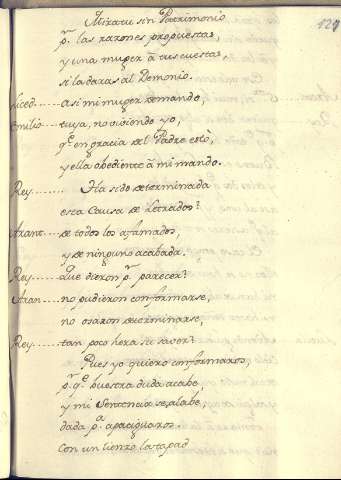 Mirara sin Patrimonio
127
pr. las razones propuestas,
y una muger â tus cuestas,
si la daras al Demonio.
Niced.... asi mi muger demando,
Emilio.... tuya, no siviendo yo,
qe. en gracia del Padre estò,
y ella obediente â mi mando.
Rey....... Ha sido determinada
esta Causa de Letrados?
Arant.... de todos los afamados,
y de ninguno acabada.
Rey....... que dieron pr. parecer?
Aran..... no pudieron conformarse,
no osaron determinarse,
Rey....... tan poco hera su saver?
Pues yo quiero conformaros,
pr. qe. buestra duda acabe,
y mi Sentencia se alabe,
dada pa. apaciguaros.
Con un lienzo la tapad